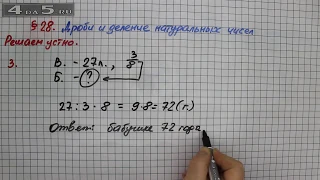 4 do 5.ru
§ 28. Дроби и деление натуральных чисел
Решаем устно.
3. В. - 27л., 3/8
Б. - ?
27 : 3 · 8 = 9·8 = 72 (г.)
Ответ: бабушке 72 года